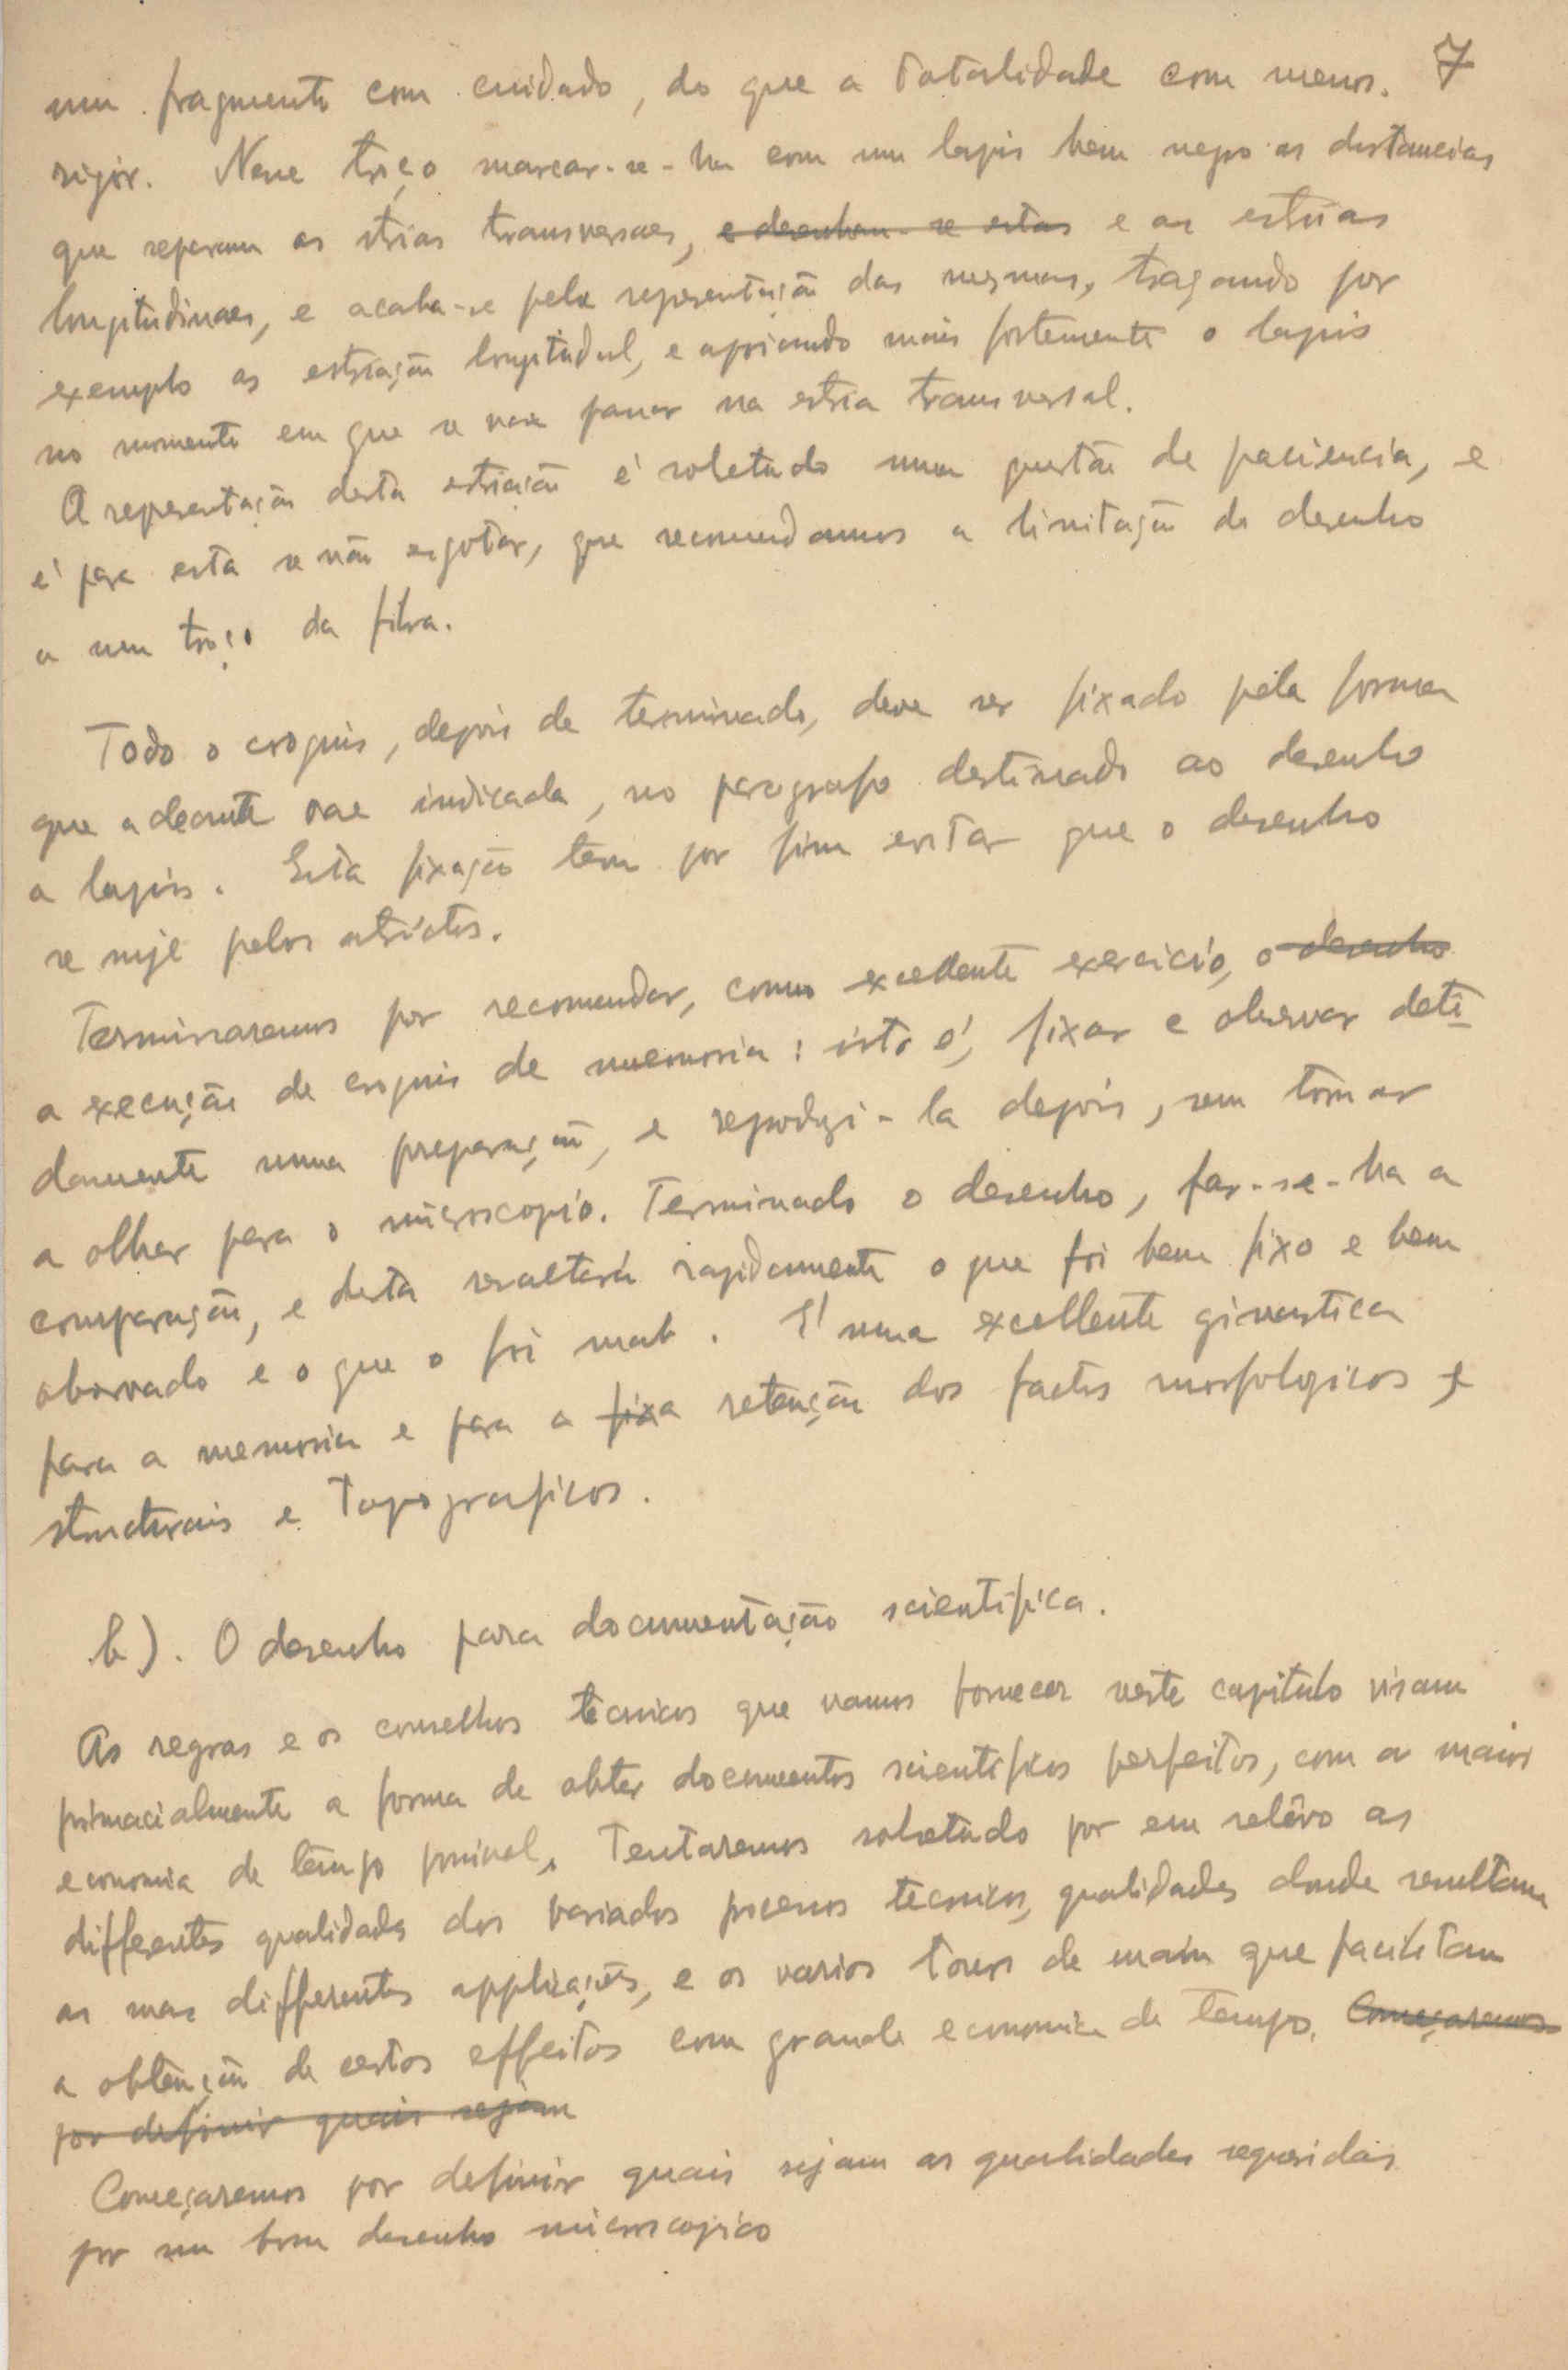 um fragmento com cuidado, do que a totalidade com menos. 7
rigor. Nesse troço marcar-se-ha com um lapis bem negro as distancias
que separam as strias transversaes, e desenham-se estas e as estrias
longitudinaes, e acaba-se pela representação das mesmas, traçando por
exemplo as estriação longitudal, e apoiando mais fortemente o lapis
no momento em que se vae passar na estria transversal.
A representação desta estriação é sobretudo uma questão de paciencia, e
é para esta se não esgotar, que recomendamos a limitação do desenho
a um troço da fibra.
Todo o croquis, depois de terminado, deve ser fixado pela forma
que adeante vae indicada, no paragrafo destinado ao desenho
a lapis. Esta fixação tem por fim evitar que o desenho
se suje pelos atrictos.
Terminaremos por recomendar, como excellente exercicio, o desenho
a execução de croquis de memoria: isto é, fixar e observar deti-
damente uma preparação, e reproduzi-la depois, sem tornar
a olhar para o microscopio. Terminado o desenho, far-se-ha a
comparação, e desta resaltará rapidamente o que foi bem fixo e bem
observado e o que o foi mal. É uma excellente ginastica
para a memoria e para a fixa retenção dos factos morfologicos e
structurais e topograficos.
b). O desenho para documentação scientifica.
As regras e os conselhos tecnicos que vamos fornecer neste capitulo visam
primacialmente a forma de obter documentos scientificos perfeitos, com a maior
economia de tempo possivel. Tentaremos sobretudo por em relêvo as
differentes qualidades dos variados processos tecnicos, qualidades donde resultam
as mas differentes applicações, e os varios tours de main que facilitam
a obtenção de certos effeitos com grande economia de tempo. Começaremos
por definir quais sejam
Começaremos por definir quais sejam as qualidades requeridas
por um bom desenho microscopico